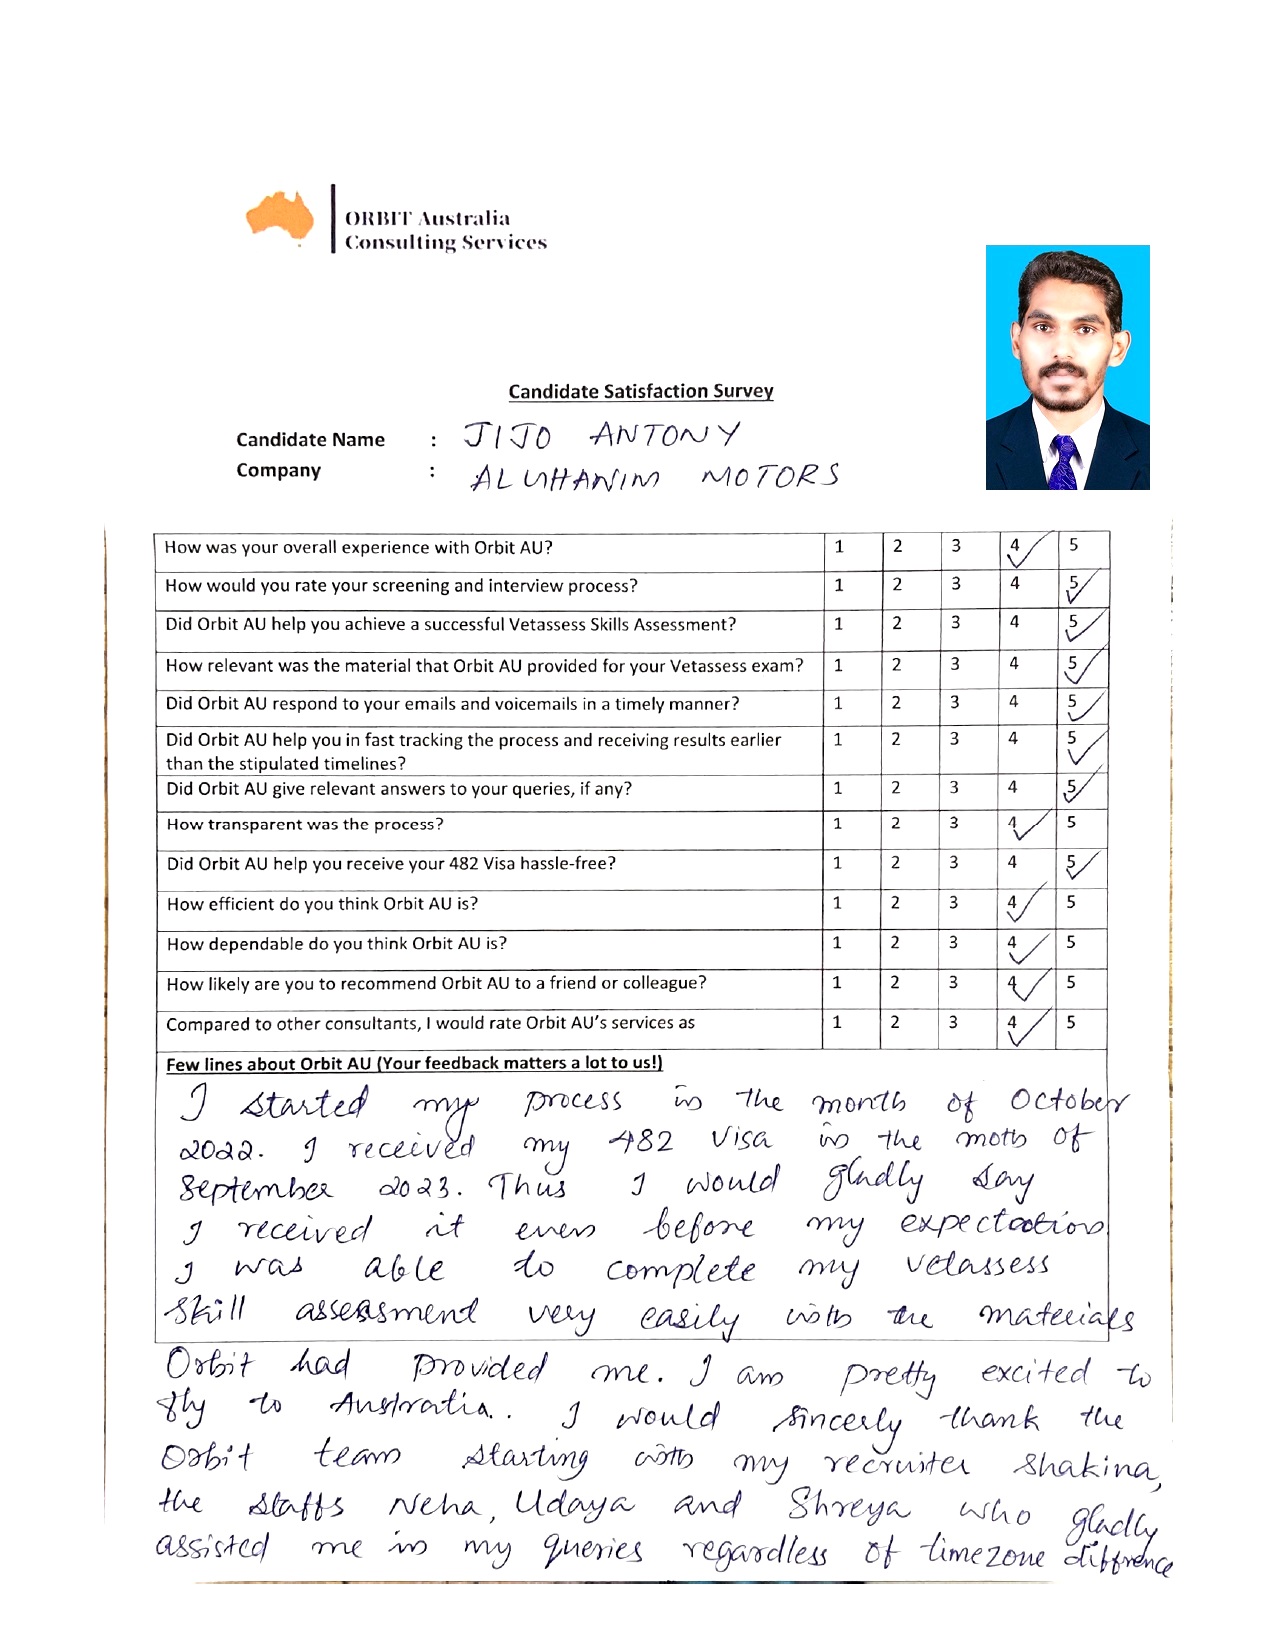 ORBIT Australia
Consulting Services
Candidate Satisfaction Survey
Candidate Name : JIJO ANTONY
Company : MOTORS
How was your overall experience with Orbit AU? 1 2 3 4 5
How would you rate your screening and interview process? 1 2 3 4 5
Did Orbit AU help you achieve a successful Vetassess Skills Assessment? 1 2 3 4 5
How relevant was the material that Orbit AU provided for your Vetassess exam? 1 2 3 4 5
Did Orbit AU respond to your emails and voicemails in a timely manner? 1 2 3 4 5
Did Orbit AU help you in fast tracking the process and receiving results earlier 1 2 3 4 5
than the stipulated timelines?
Did Orbit AU give relevant answers to your queries, if any? 1 2 3 4 5
How transparent was the process? 1 2 3 4 5
Did Orbit AU help you receive your 482 Visa hassle-free? 1 2 3 4 5
How efficient do you think Orbit AU is? 1 2 3 4 5
How dependable do you think Orbit AU is? 1 2 3 4 5
How likely are you to recommend Orbit AU to a friend or colleague? 1 2 3 4 5
Compared to other consultants, I would rate Orbit AU's services as 1 2 3 4 5
Few lines about Orbit AU (Your feedback matters a lot to us!)
I started my process in the month of October
2022. I received my 482 Visa in the moth of
September 2023. Thus I would gladly say
I received it even before my expectation
I was able to complete my vetassess
skill assessment very easily with the materials
Orbit had provided me. I am pretty excited to
fly to Australia.. I would sincerly thank the
Orbit team starting with my recruiter Shakina,
the staffs Neha, Udaya and Shreya who gladly
assisted me in my queries regardless of timezone difference